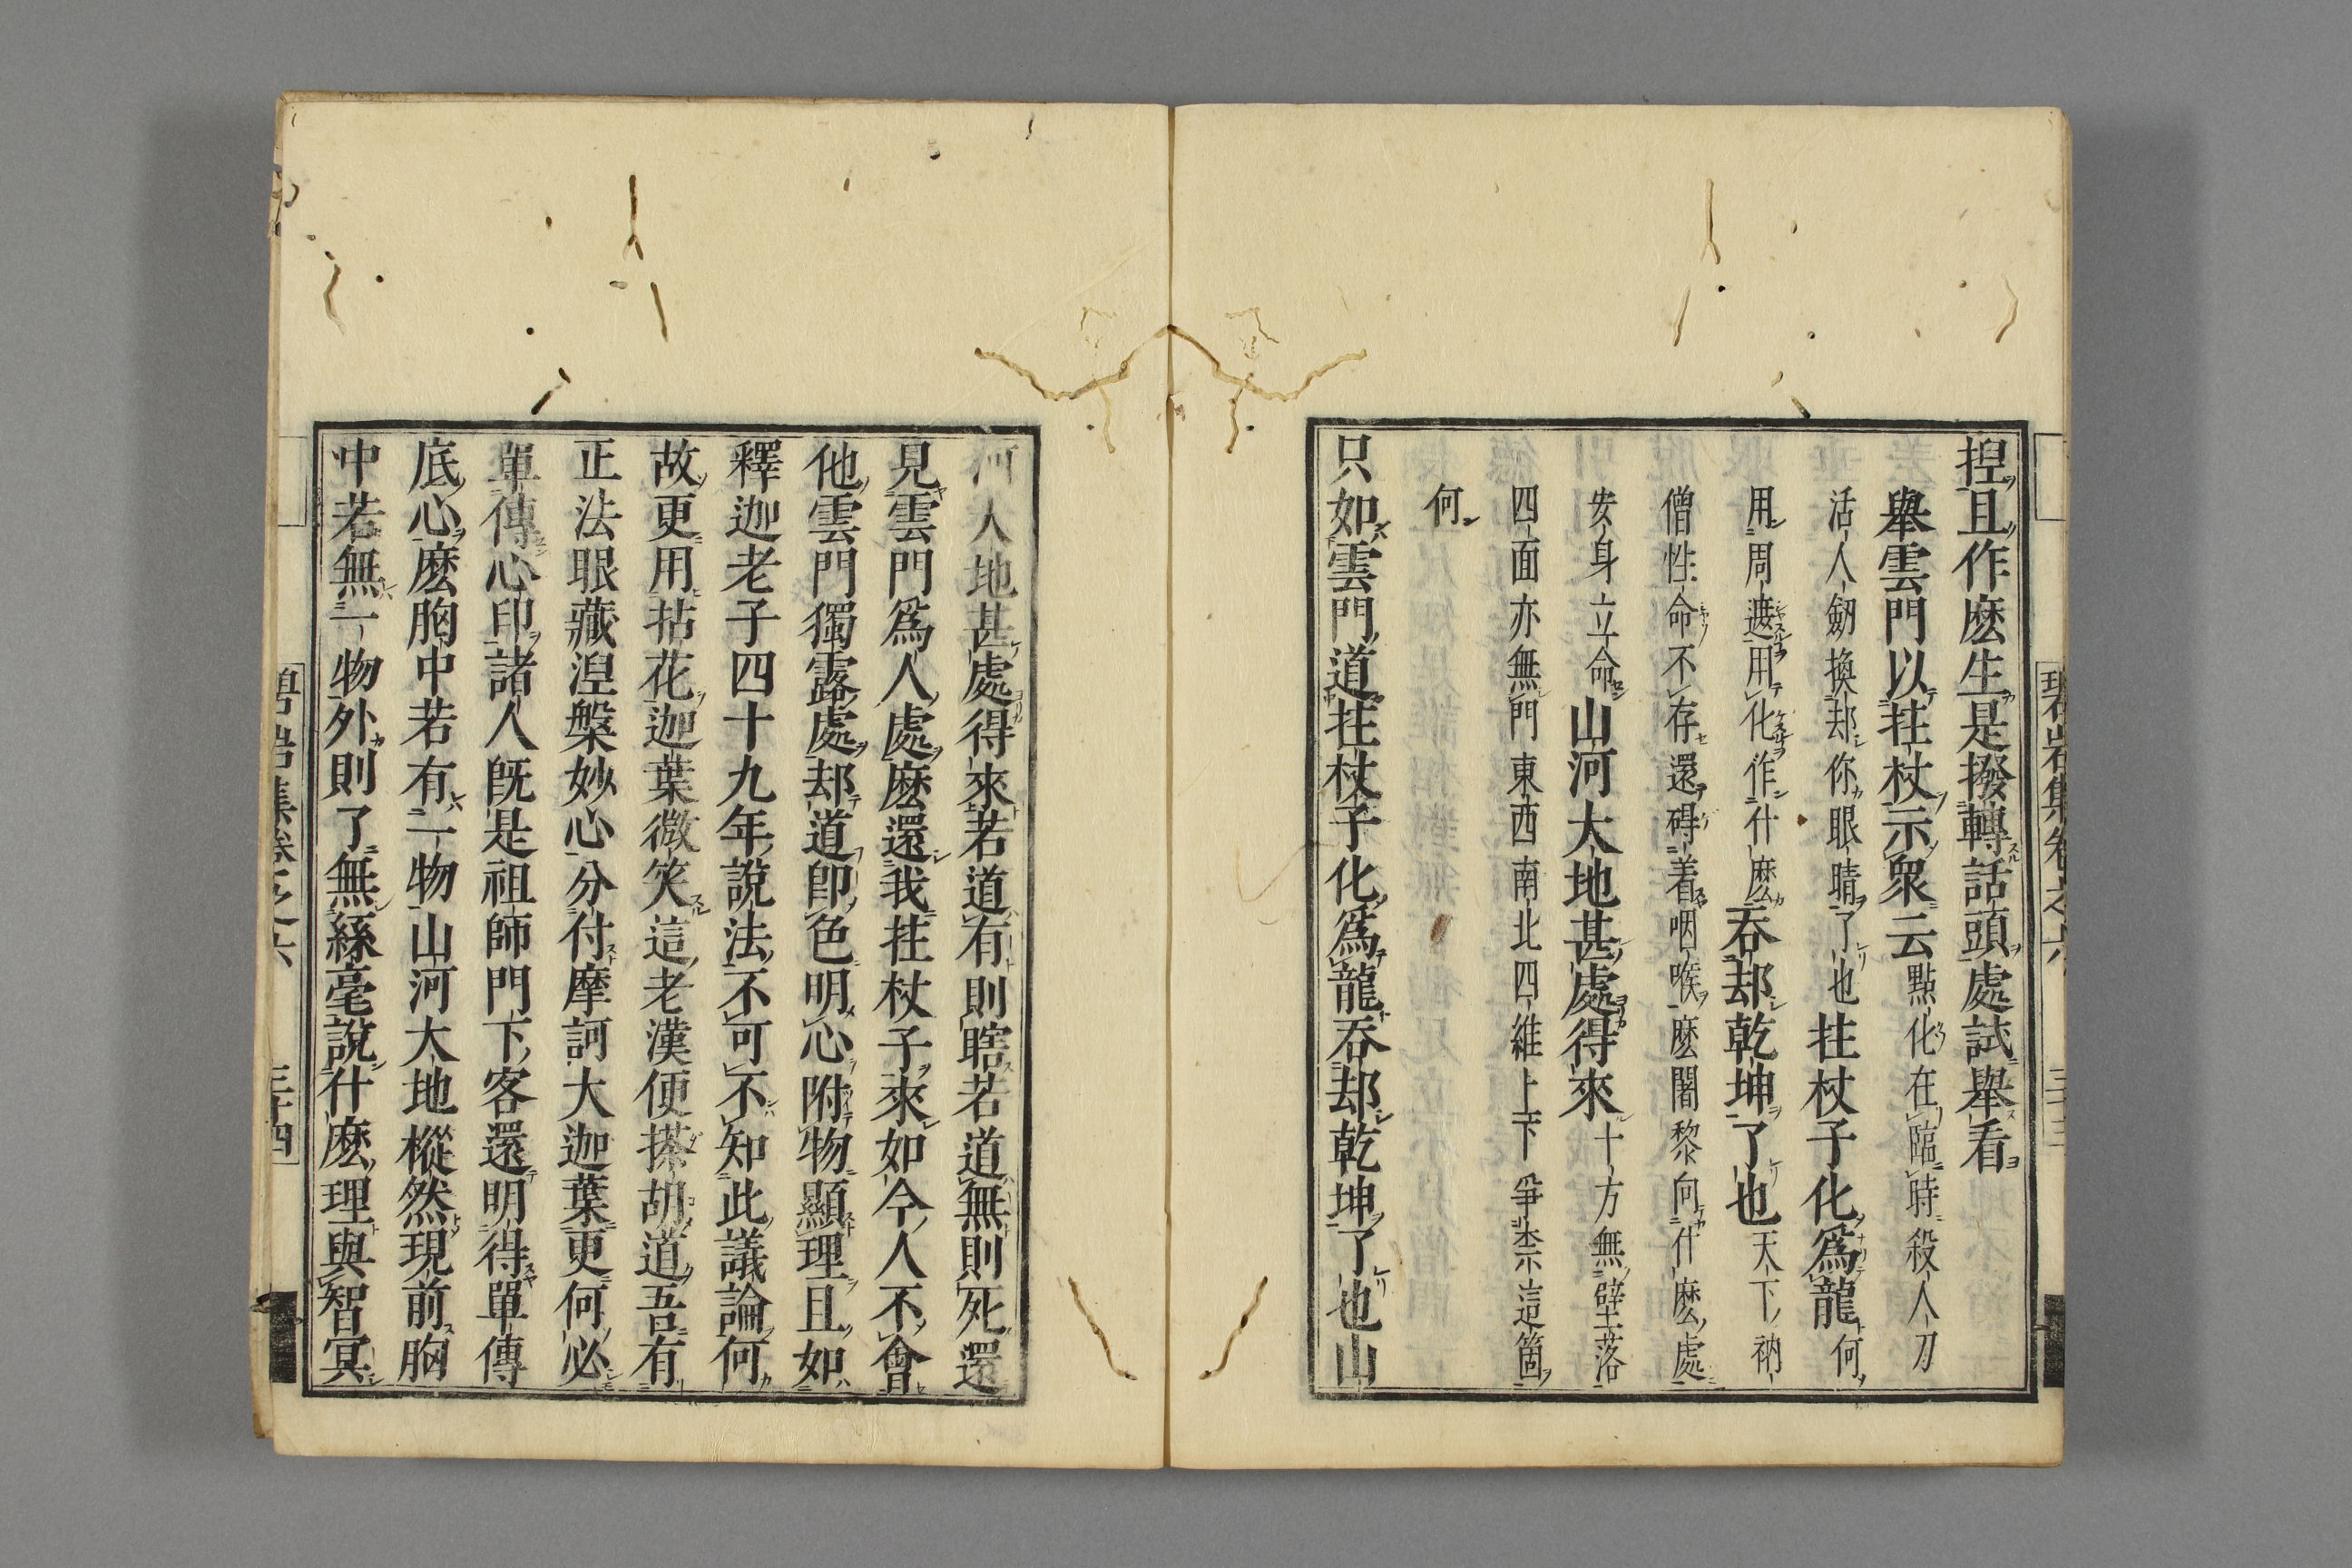 捏且作麽生是撥轉話頭處試舉看
舉雲門以拄杖示衆云點化在臨時殺人刀
活人劒換却你眼睛了也拄杖子化爲龍何
用周遮用化作什麽吞却乾坤了也天下衲
僧性命不存還碍着咽喉麽闍黎向什麽處
安身立命山河大地甚處得來十方無壁落
四面亦無門東西南北四維上下爭柰這箇
何
只如雲門道拄杖子化爲龍吞却乾坤了也山
河大地甚處得來若道有則瞎若道無則死還
見雲門爲人處麽還我拄杖子來如今人不會
他雲門獨露處却道卽色明心附物顯理且如
釋迦老子四十九年說法不可不知此議論何
故更用拈花迦葉微笑這老漢便搽胡道吾有
正法眼藏涅槃妙心分付摩訶大迦葉更何必
單傳心印諸人旣是祖師門下客還明得單傳
底心麽胸中若有一物山河大地樅然現前胸
中若無一物外則了無絲毫說什麽理與智冥